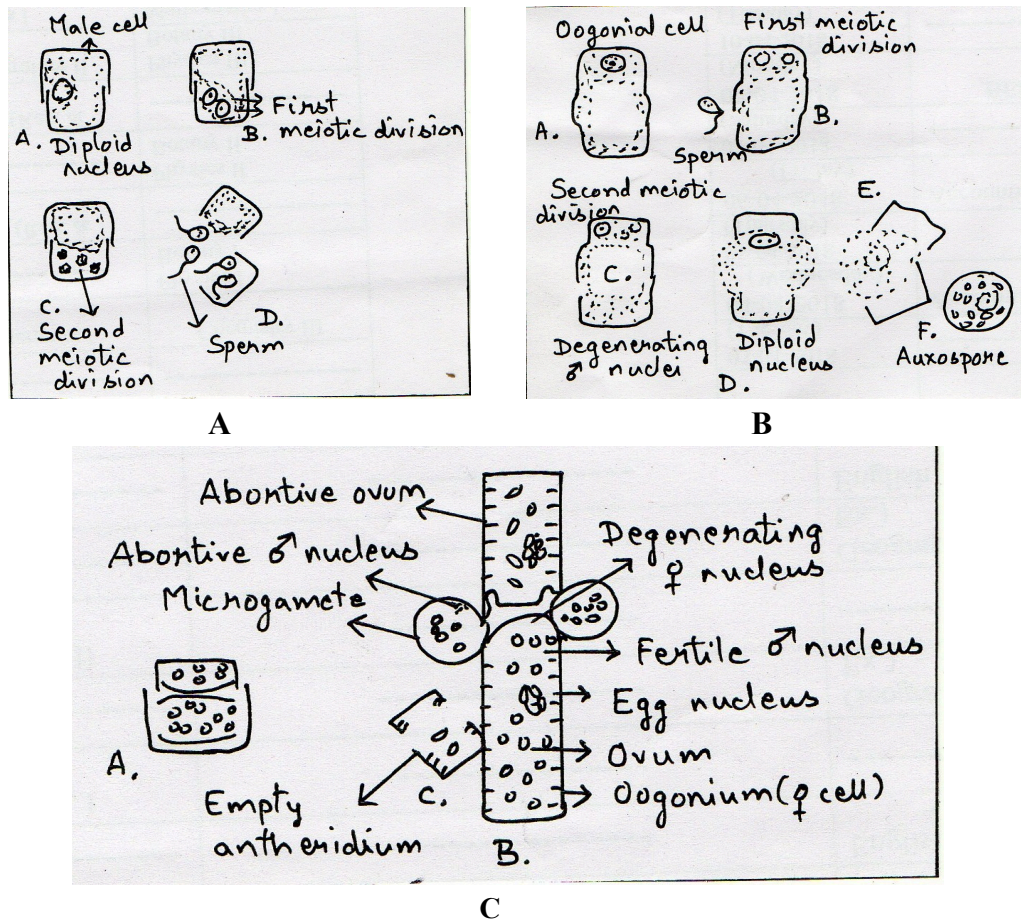 Male cell
A. Diploid
nucleus
B. First
meiotic division
C.
Second
meiotic
division
D.
Sperm
A
Oogonial cell
A.
First meiotic
division
B.
Sperm
Second meiotic
division
C.
Degenerating
♂ nuclei
Diploid
nucleus
D.
E.
F.
Auxospore
B
Abortive ovum
Abortive ♂ nucleus
Microgamete
Degenerating
♀ nucleus
Fertile ♂ nucleus
Egg nucleus
Ovum
Oogonium(♀ cell)
A.
Empty
antheridium
C.
B.
C